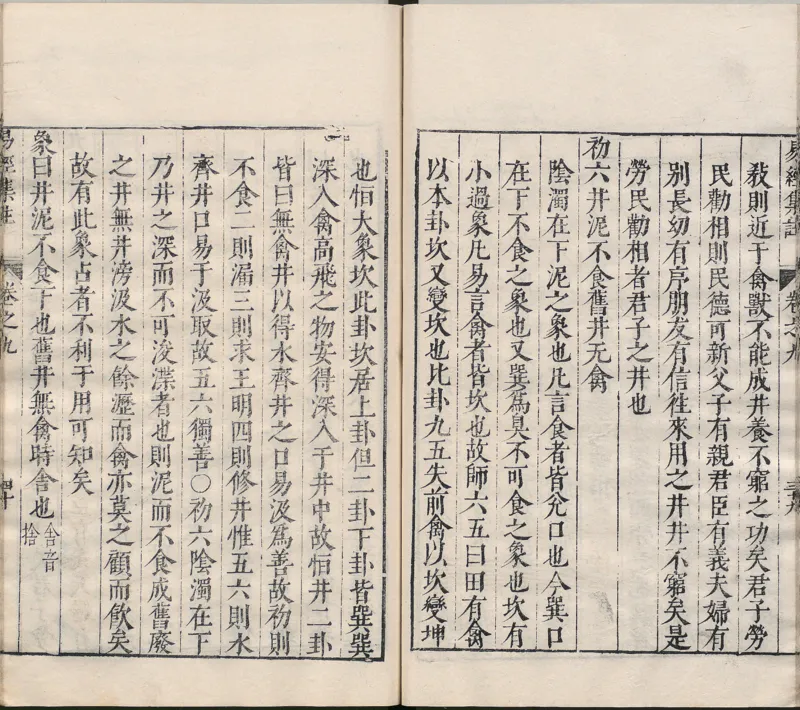 易經集註 卷之九 三十九
教則近于禽獸不能成井養不窮之功矣君子勞
民勸相則民德可新父子有親君臣有義夫婦有
別長幼有序朋友有信往來用之井井不窮矣是
勞民勸相者君子之井也
初六井泥不食舊井无禽
陰濁在下泥之象也凡言食者皆兌口也今巽口
在下不食之象也又巽爲臭不可食之象也坎有
小過象凡易言禽者皆坎也故師六五曰田有禽
以本卦坎又變坎也比卦九五失前禽以坎變坤
也恒大象坎此卦坎居上卦但二卦下卦皆巽巽
深入禽高飛之物安得深入于井中故恒井二卦
皆曰無禽井以得水齊井之口易汲爲善故初則
不食二則漏三則求王明四則修井惟五六則水
齊井口易于汲取故五六獨善○初六陰濁在下
乃井之深而不可浚渫者也則泥而不食成舊廢
之井無井滂汲水之餘瀝而禽亦莫之顧而飲矣
故有此象占者不利于用可知矣
象曰井泥不食下也舊井無禽時舍也舍音捨
易經集註 卷之九 四十